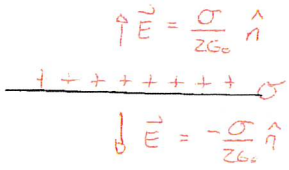 E⃗ = σ/2ε₀ n̂
+ + + + + + + + σ
E⃗ = -σ/2ε₀ n̂